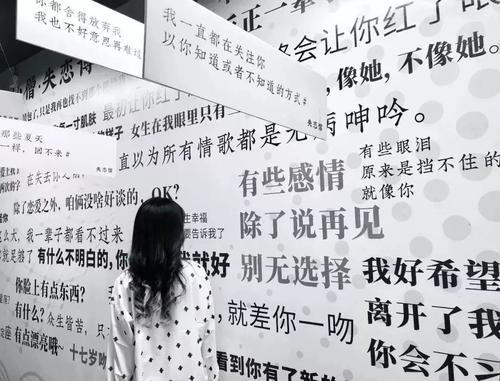 你都舍得放弃我
我也不好意思再难过
我一直都在关注你
以你知道或者不知道的方式#
失恋馆
那些夏天
一样，回不来#
失恋馆
会让你红了眼
像她，不像她。
最初让你红
一寸肌肤
女生在我眼里只有
病呻吟。
直以为所有情歌都是无
有些眼泪
原来是挡不住的
就像你
有些感情
除了说再见
别无选择
除了恋爱之外，咱俩没啥好谈的，OK?
生幸福
要告诉我了
我一辈子都看不过来
有什么不明白的，你
就好
你脸上有点东西？
有什么？
有点漂亮哦~
众生皆苦，只
十七岁
就差你一吻
看到你有了新的
我好希望
离开了我
你会不